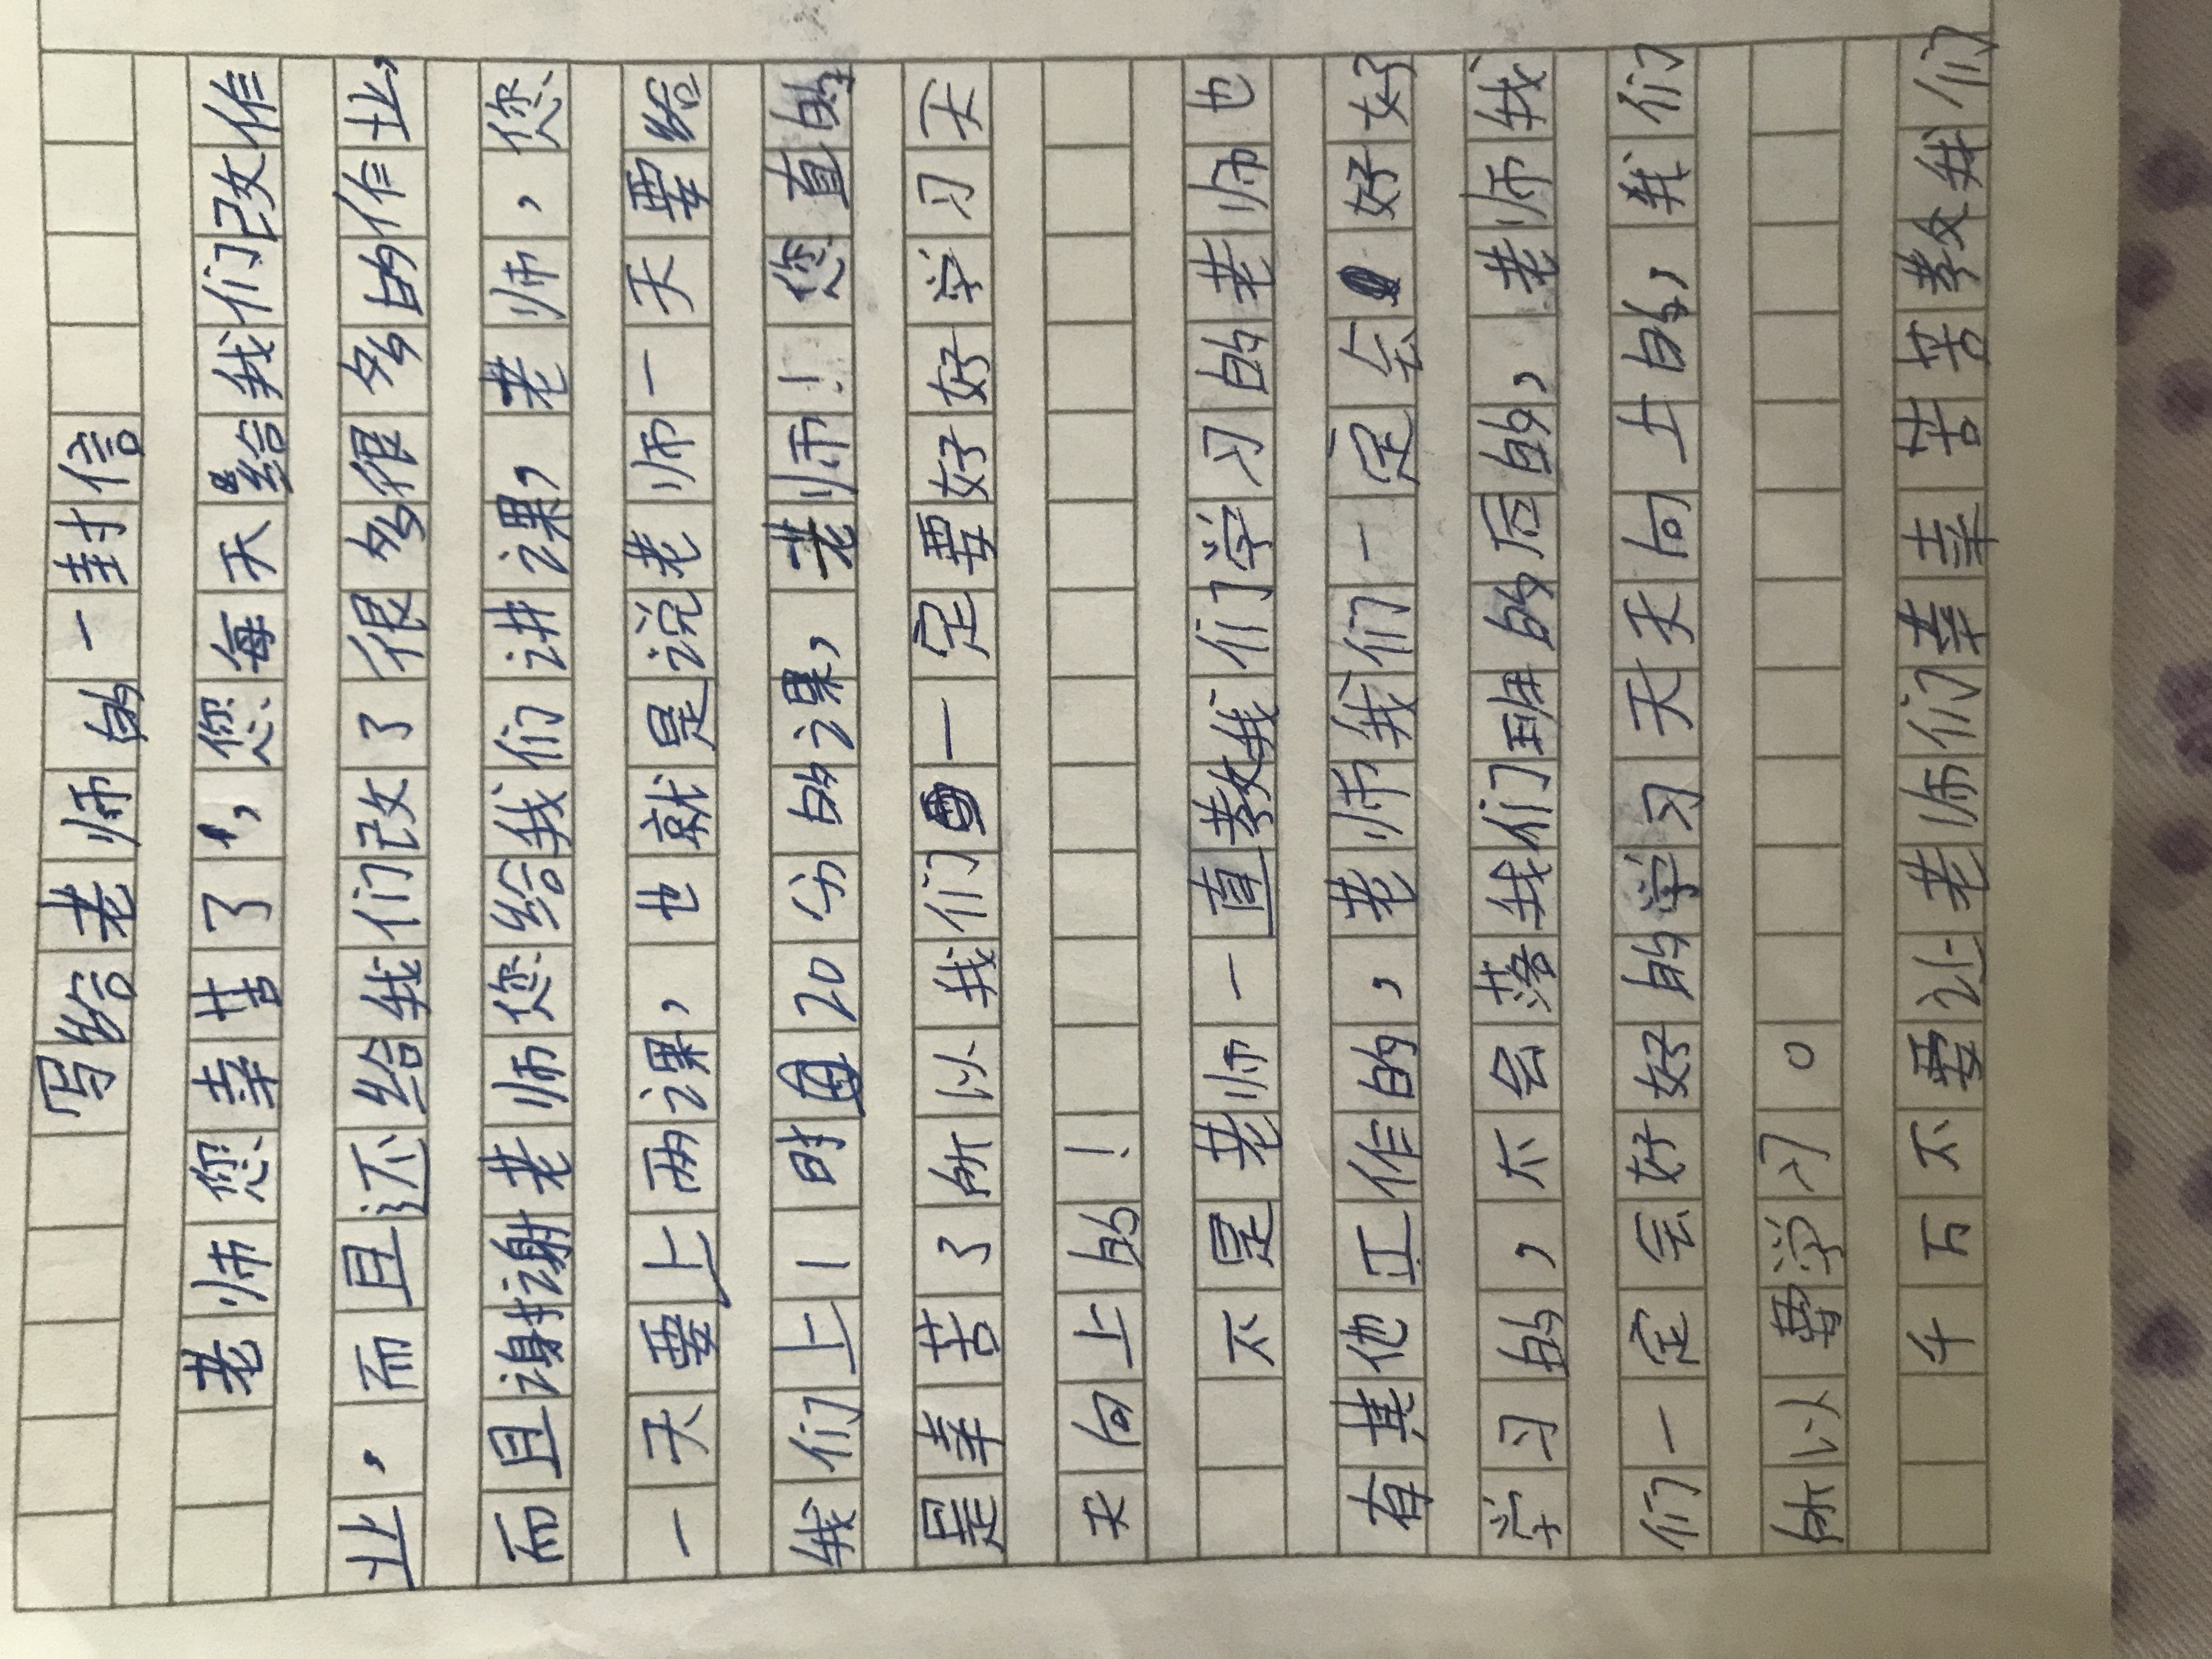 写给老师的一封信
老师您幸苦了,您每天给我们改作
业,而且还给我们改了很多很多的作业,
而且谢谢老师您给我们讲课,老师,您
一天要上两课,也就是说老师一天要给
我们上1时20分的课,老师!您真的
是幸苦了所以我们一定要好好学习天
天向上的!
不是老师一直教我们学习的老师也
有其他工作的,老师我们一定会好好
学习的,不会落我们班的后的,老师我
们一定会好好的学习天天向上的,我们
所以要学习。
千万不要让老师们幸幸苦苦教我们